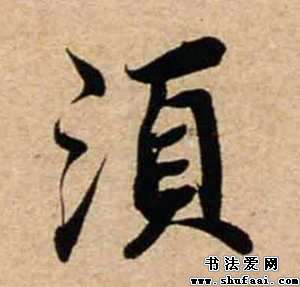 湏
书法爱网
www.shufaai.com